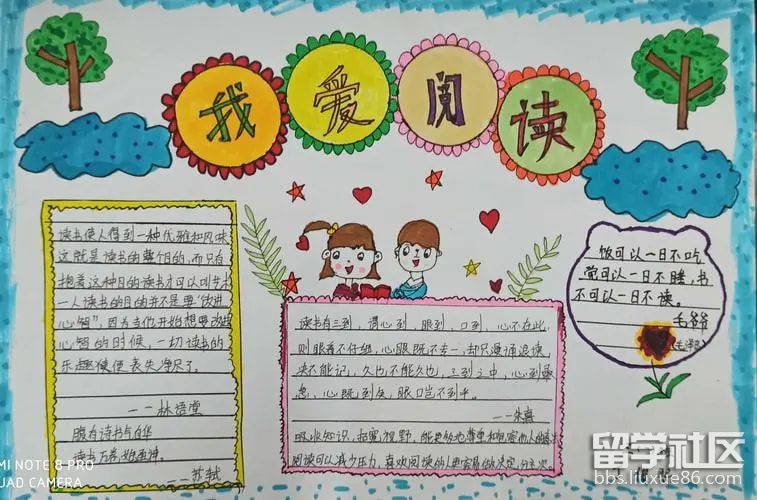 我爱阅读
读书使人得到一种优雅和风味
这就是读书的整个目的，而只有
抱着这种目的读书才可以叫艺术
一人读书的目的并不是要"改进
心智"，因为当他开始想要改进
心智的时候，一切读书的
乐趣便使丧失净尽了。
——林语堂
腹有诗书气自华
读书万卷始通神
——苏轼
读书有三到，谓心到，眼到，口到，心不在此，
则眼看不仔细，心眼既不专一，却只漫诵浪读，
决不能记，久也不能久也，三到之中，心到最
急，心既到矣，眼口岂不到乎。
——朱熹
吸收知识，拓宽视野，
阅读可以减少压力，喜欢阅读的人更容易做决定，
饭可以一日不吃，
觉可以一日不睡，书
不可以一日不读。
毛爷爷
MI NOTE 8 PRO
UAD CAMERA
留学社区
bbs.liuxue86.com